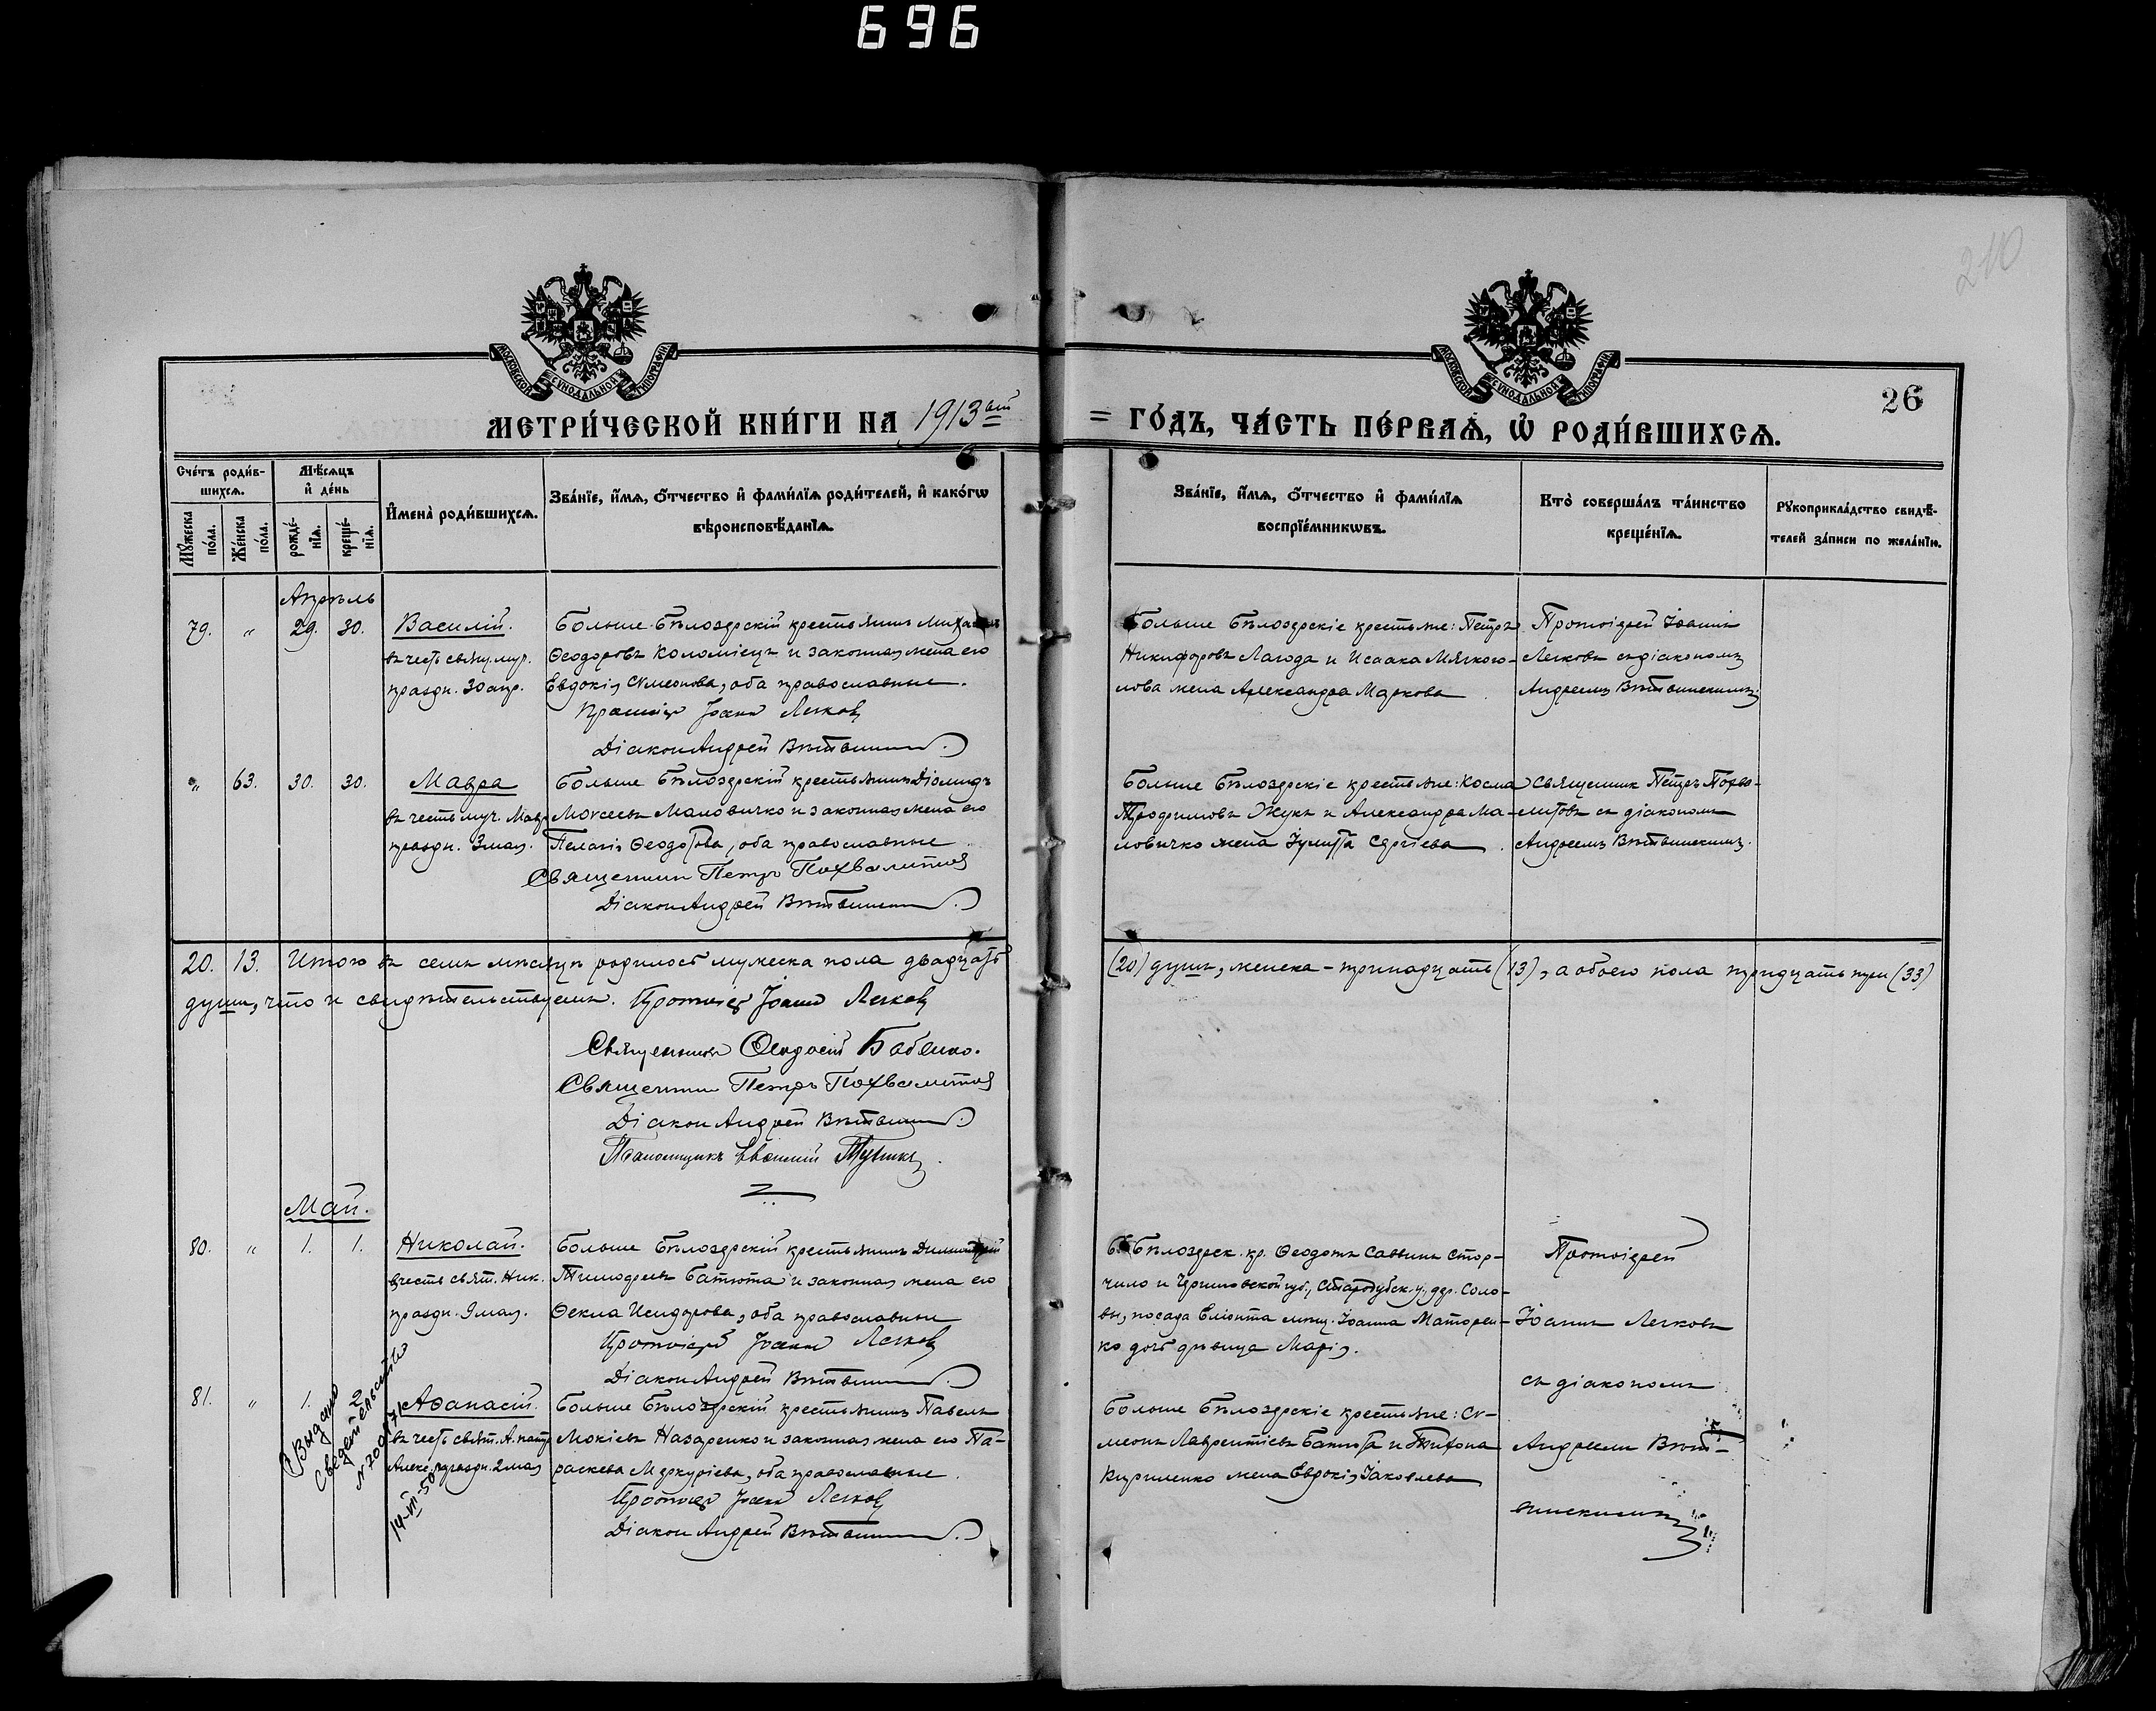 696
210
МОСКОВСКОЙ СѴНОДАЛЬНОЙ ТИПОГРАФІИ
МОСКОВСКОЙ СѴНОДАЛЬНОЙ ТИПОГРАФІИ
26
МЕТРИ́ЧЕСКОЙ КНИ́ГИ НА 1913ый
= ГО́ДЪ, ЧА́СТЬ ПЕ́РВАѦ, Ѡ҆ РОДИ́ВШИХСѦ.
Сче́тъ роди́в-
шихсѧ.
Мѣ́сѧцъ
и҆ де́нь
Мꙋ́жеска по́ла.
Же́нска по́ла.
рожде́-
нїѧ.
креще́-
нїѧ.
И҆мена̀ роди́вшихсѧ.
Зва́нїе, и҆́мѧ, ѻ҆́тчество и҆ фами́лїѧ роди́телей, и҆ како́гѡ
вѣроисповѣ́данїѧ.
Зва́нїе, и҆́мѧ, ѻ҆́тчество и҆ фами́лїѧ
воспрїе́мникѡвъ.
Кто̀ соверша́лъ та́инство
креще́нїѧ.
Рꙋкоприкла́дство свидѣ́-
телей за́писи по жела́нїю.
Апрѣль
79. " 29. 30.
Василій.
въ честь свящ.муч.
праздн. 30 апр.
Больше-Бѣлозерскій крестьянинъ Михаилъ
Ѳеодоровъ Коломіецъ и законная жена его
Евдокія Сѵмеонова, оба православные.
Протоіер Іоанн Легков
Діакон Андрей Вѣтвин
Больше Бѣлозерскіе крестьяне: Петръ
Никифоровъ Лагода и Исаака Мягкого-
лова жена Александра Маркова
Протоіерей Іоаннъ
Легковъ съ діакономъ
Андреемъ Вѣтвинскимъ.
" 63. 30. 30.
Мавра
въ честь муч. Мавр
праздн. 3 мая.
Больше Бѣлозерскій крестьянинъ Діомидъ
Моѵсеевъ Маловичко и законная жена его
Пелагія Ѳеодотова, оба православные
Священник Петръ Похвалитов
Діакон Андрей Вѣтвин
Больше Бѣлозерскіе крестьяне: Косма
Трофимовъ Жукъ и Александра Ма-
ловичко жена Іулитта Сергіева
Священникъ Петръ Похва-
литовъ съ діакономъ
Андреемъ Вѣтвинскимъ.
20. 13. Итого въ семъ мѣсяцѣ родилось мужеска пола двадцать (20) душъ, женска - тринадцать (13), а обоего пола тридцать три (33)
душъ, что и свидѣтельствуемъ. Протоіер Іоанн Легков
Священникъ Ѳеодосій Бабенко.
Священник Петръ Похвалитов
Діакон Андрей Вѣтвин
Псаломщикъ
Май.
80. " 1. 1.
Николай.
въ честь свят. Ник.
праздн. 9 мая.
Больше Бѣлозерскій крестьянинъ Димитрій
Тимофеевъ Батюта и законная жена его
Ѳекла Исидорова, оба православные
Протоіерей Іоанн Легков
Діакон Андрей Вѣтвин
Б. Бѣлозерск. кр. Ѳеодотъ Саввинъ Стор-
чило и Черниговской губ., Стародубск. у., дер. Соло-
вы, посада Еліонта мѣщ. Іоанна Маторен-
ко дочь дѣвица Марія.
Протоіерей
Іоаннъ Легковъ
съ діакономъ
81. " 1. 2
Аѳанасій.
въ честь свят. А. патр.
Алекс. праздн. 2 мая
Больше Бѣлозерскій крестьянинъ Павелъ
Мокіевъ Назаренко и законная жена его Па-
раскева Меркуріева, оба православные.
Протоіер Іоанн Легков
Діакон Андрей Вѣтвин
Больше Бѣлозерскіе крестьяне: Сѵ-
меонъ Лаврентіевъ Батюта и Тихона
Кириленко жена Евдокія Іаковлева
Андреемъ Вѣт-
винскимъ
Выдано
свидетельство
14-VII-50